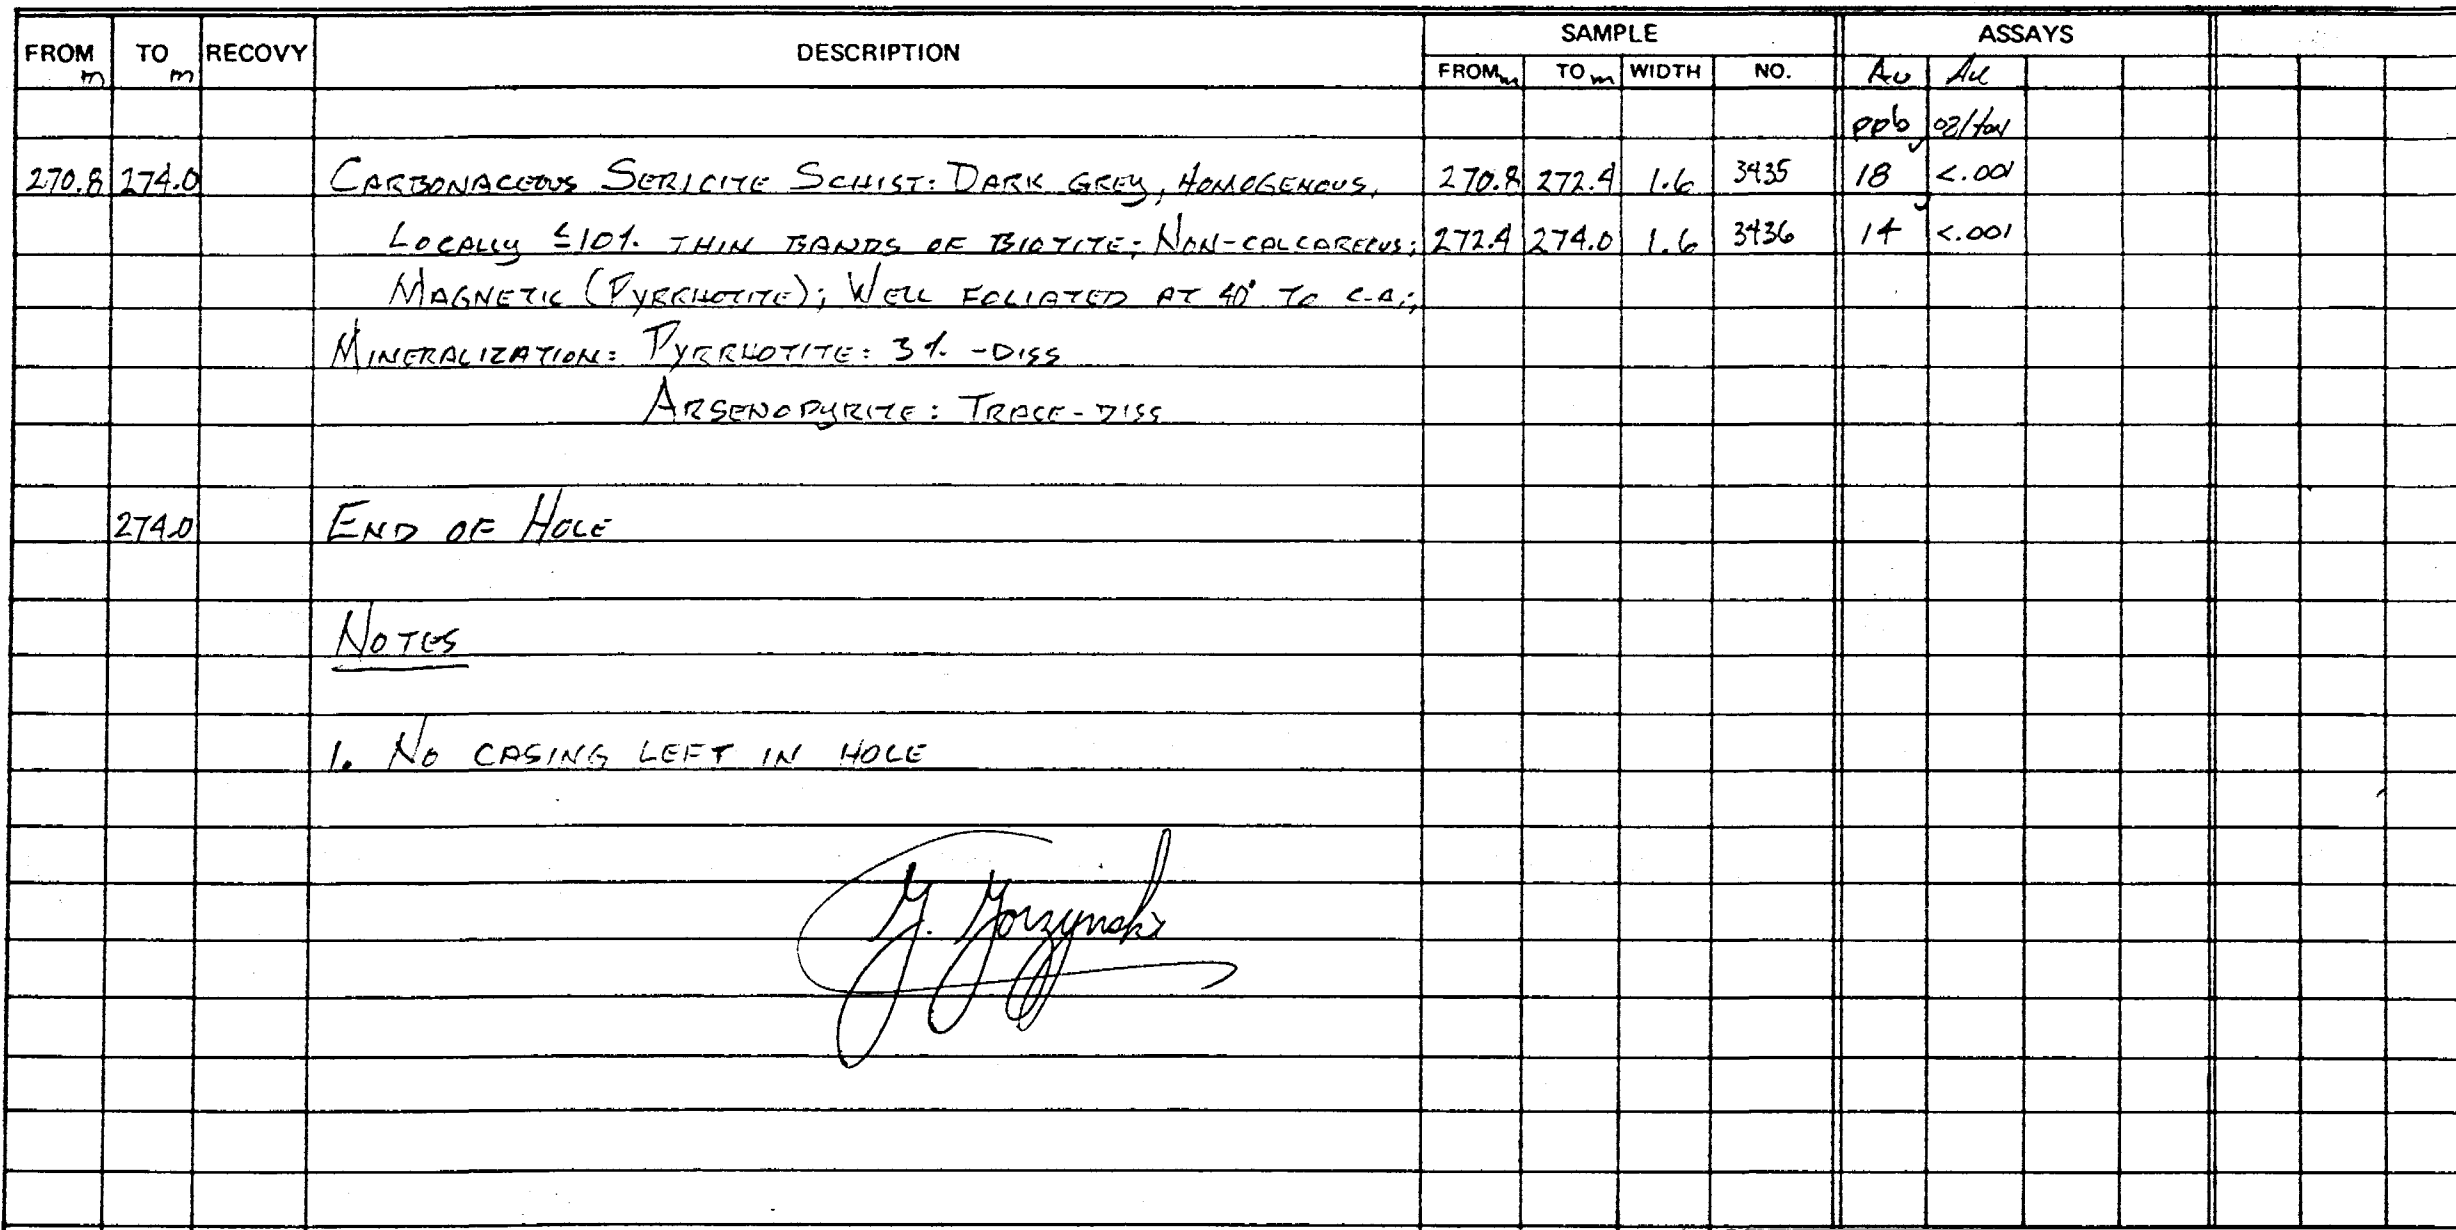 FROM m TO m RECOVY DESCRIPTION SAMPLE ASSAYS
FROM m TO m WIDTH NO. Au Au
ppb oz/ton
270.8 274.0 CARBONACEOUS SERICITE SCHIST: DARK GREY, HOMOGENOUS, 270.8 272.4 1.6 3435 18 <.001
LOCALLY ≤10% THIN BANDS OF BIOTITE; NON-CALCAREOUS; 272.4 274.0 1.6 3436 14 <.001
MAGNETIC (PYRRHOTITE); WELL FOLIATED AT 40° TO C.A.;
MINERALIZATION: PYRRHOTITE: 3% -DISS
ARSENOPYRITE: TRACE-DISS
274.0 END OF HOLE
NOTES
1. NO CASING LEFT IN HOLE
G. Gorzynski